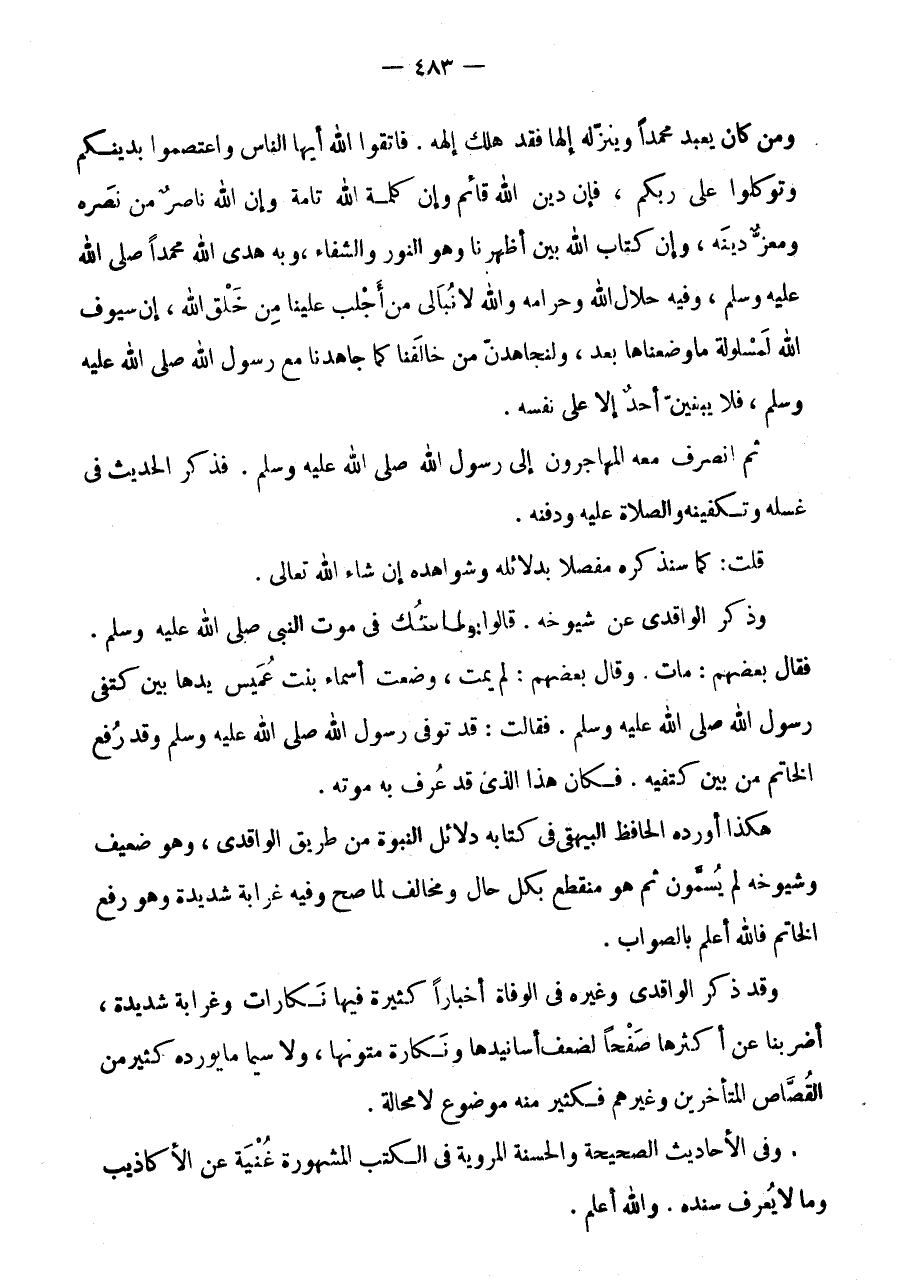 — ٤٨٣ —
ومن كان يعبد محمداً وينزّله إلها فقد هلك إلهه . فاتقوا الله أيها الناس واعتصموا بدينكم
وتوكلوا على ربكم ، فإن دين الله قائم وإن كلمة الله تامة وإن الله ناصرٌ من نصَره
ومعزٌّ دينَه ، وإن كتاب الله بين أظهرنا وهو النور والشفاء ، وبه هدى الله محمداً صلى الله
عليه وسلم ، وفيه حلال الله وحرامه والله لا نُبَالى من أَجْلب علينا مِن خَلْق الله ، إن سيوف
الله لَمسْلولة ما وضعناها بعد ، ولنجاهدنّ من خالَفنا كما جاهدنا مع رسول الله صلى الله عليه
وسلم ، فلا يبنينّ أحدٌ إلا على نفسه .
ثم انصرف معه المهاجرون إلى رسول الله صلى الله عليه وسلم . فذكر الحديث فى
غسله وتكفينه والصلاة عليه ودفنه .
قلت: كما سنذكره مفصلا بدلائله وشواهده إن شاء الله تعالى .
وذكر الواقدى عن شيوخه . قالوا: ولما شُك فى موت النبى صلى الله عليه وسلم .
فقال بعضهم : مات . وقال بعضهم : لم يمت ، وضعت أسماء بنت عُمَيس يدها بين كتفى
رسول الله صلى الله عليه وسلم . فقالت : قد توفى رسول الله صلى الله عليه وسلم وقد رُفع
الخاتم من بين كتفيه . فكان هذا الذى قد عُرف به موته .
هكذا أورده الحافظ البيهقى فى كتابه دلائل النبوة من طريق الواقدى ، وهو ضعيف
وشيوخه لم يُسمَّون ثم هو منقطع بكل حال ومخالف لما صح وفيه غرابة شديدة وهو رفع
الخاتم فالله أعلم بالصواب .
وقد ذكر الواقدى وغيره فى الوفاة أخباراً كثيرة فيها نَكارات وغرابة شديدة ،
أضربنا عن أكثرها صَفْحاً لضعف أسانيدها ونَكارة متونها ، ولا سيما ما يورده كثير من
القُصَّاص المتأخرين وغيرهم فكثير منه موضوع لا محالة .
. وفى الأحاديث الصحيحة والحسنة المروية فى الكتب المشهورة غُنْيَة عن الأكاذيب
وما لا يُعرف سنده . والله أعلم .